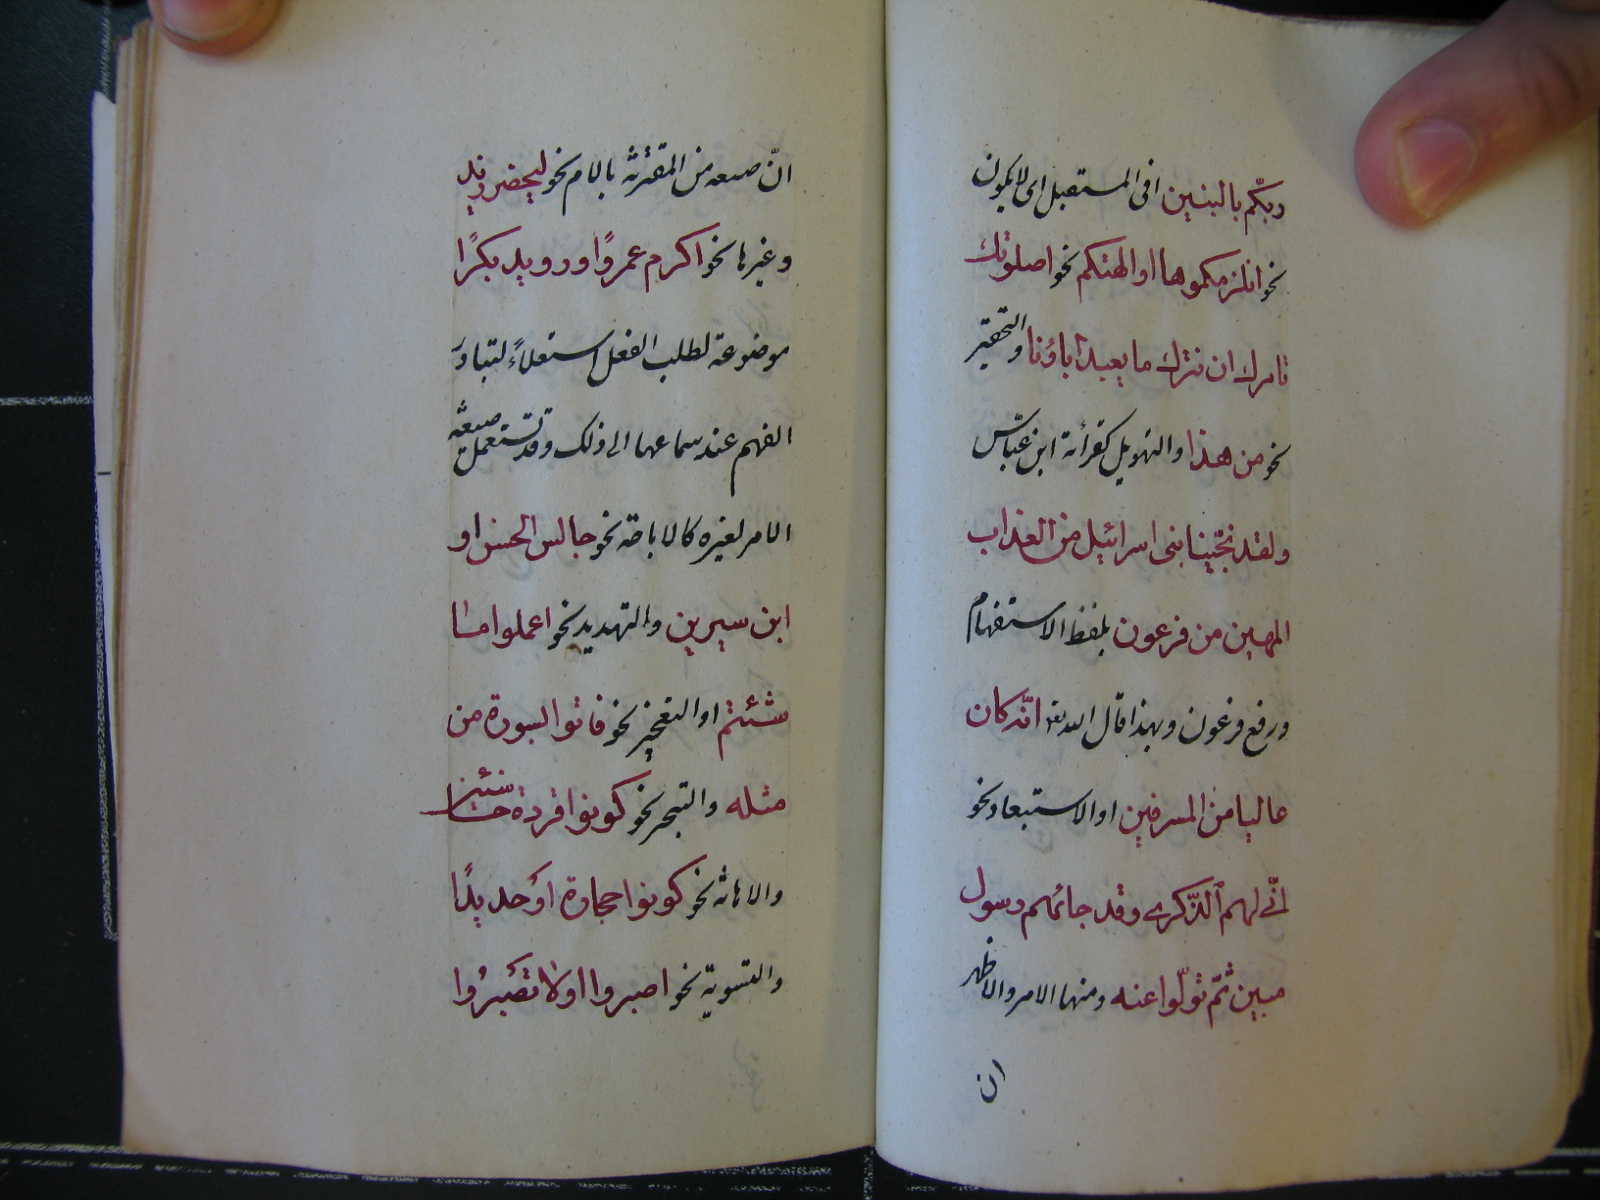 ربكّم بالبنين افى المستقبل اى لا يكون
نحو انلزمكموها او الهتكم نحو اصلوتك
تامرك ان نترك ما يعبد اباؤنا والتحقير
نحو من هذا والتهويل كقرأئة ابن عبّاس
ولقد نجّينا بنى اسرائيل من العذاب
المهين من فرعون بلفظ الاستفهام
ورفع فرعون وبهذا قال الله تعه انّه كان
عاليا من المسرفين او الاستبعاد نحو
انّى لهم الذّكرى وقد جائهم رسول
مبين ثمّ تولّوا عنه ومنها الامر والاظهر
ان
انّ صيغه من المقترنة باللام نحو ليحضر زيد
وغيرها نحو اكرم عمروًا ورويد بكرًا
موضوعة لطلب الفعل استعلاءً لتبادر
الفهم عند سماعها الى ذلك وقد تستعمل صيغة
الامر لغيره كالاباحة نحو جالس الحسن او
ابن سيرين والتهديد نحو اعملوا ما
شئتم او التعجيز نحو فاتوا بسورة من
مثله والتسخير نحو كونوا قردة خاسئين
والاهانة نحو كونوا حجارة او حديدًا
والتسوية نحو اصبروا اولا تصبروا